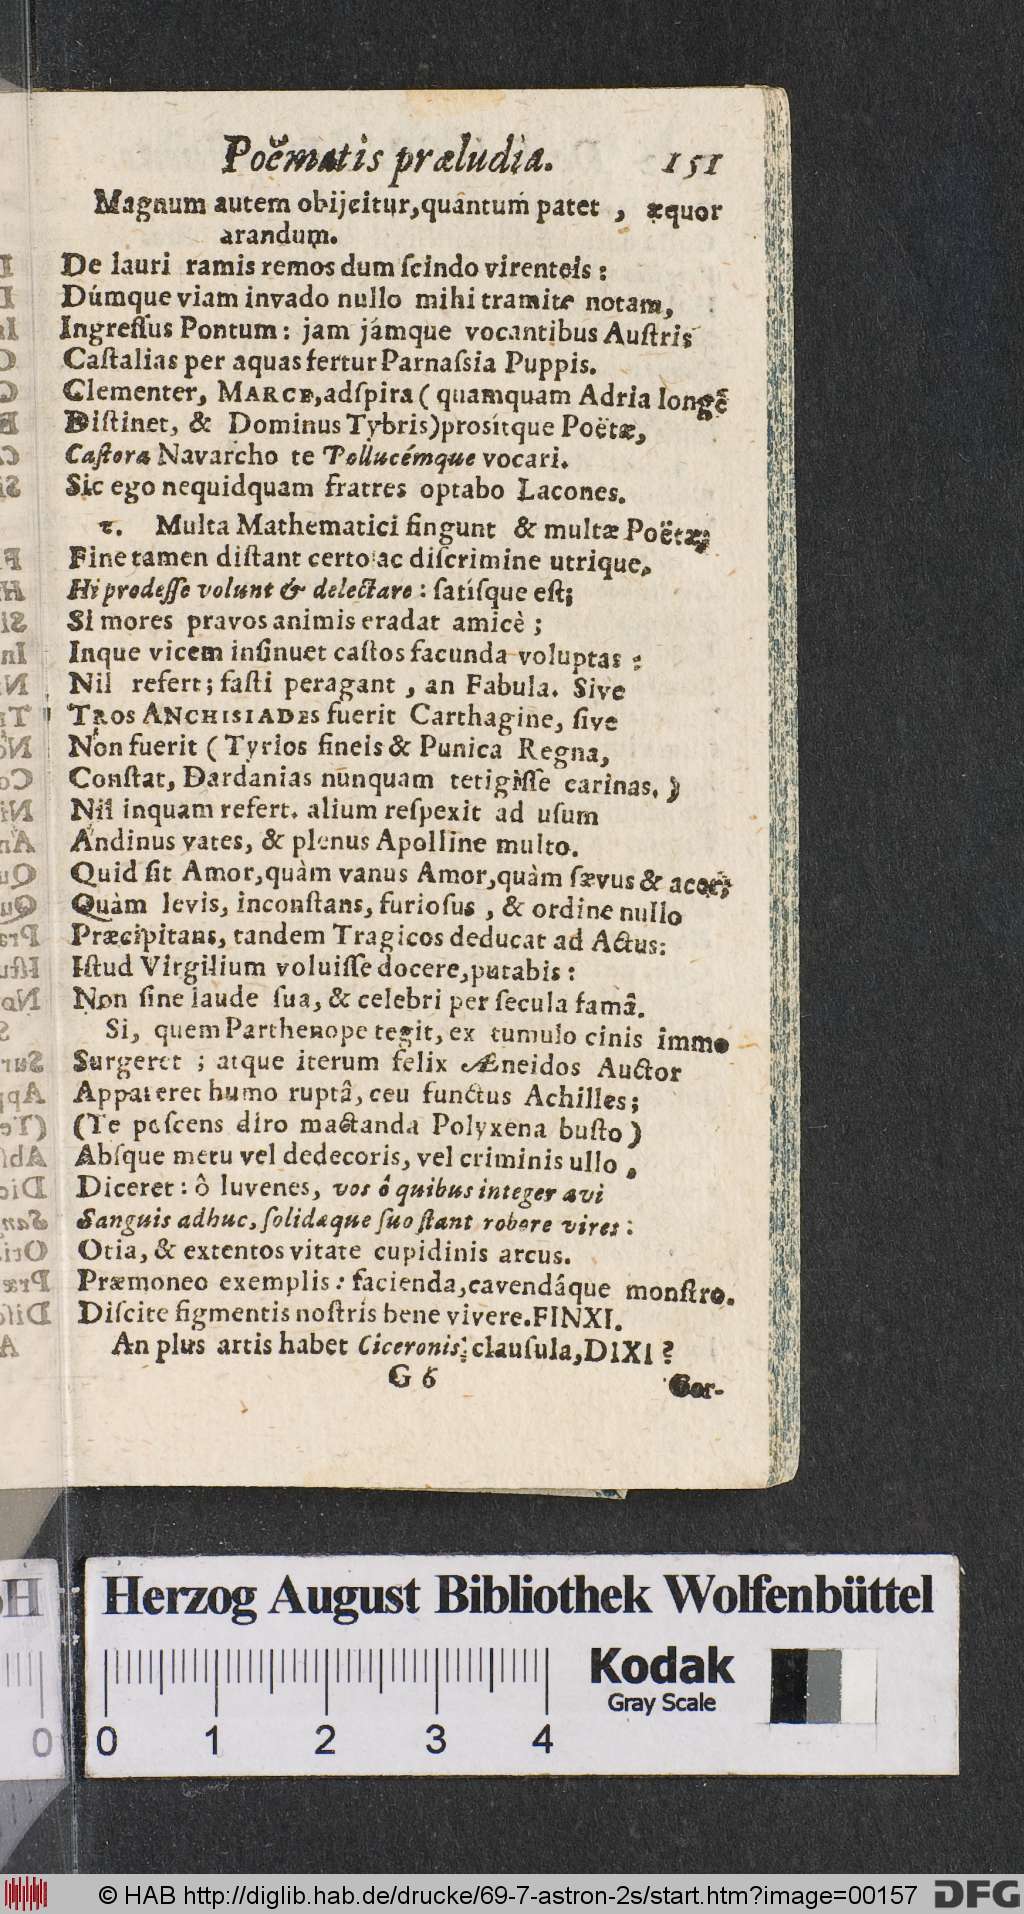 Poëmatis præludia. 151
Magnum autem obijcitur, quântum patet, æquor
arandum.
De lauri ramis remos dum ſcindo virenteis:
Dúmque viam invado nullo mihi tramite notam,
Ingreſſus Pontum: jam jámque vocantibus Auſtris
Caſtalias per aquas fertur Parnaſsia Puppis.
Clementer, MARCE, adſpira (quamquam Adria longê
Diſtinet, & Dominus Tybris) prosítque Poëtæ,
Caſtora Navarcho te Pollucémque vocari.
Sic ego nequidquam fratres optabo Lacones.
τ. Multa Mathematici fingunt & multæ Poëtæ;
Fine tamen diſtant certo ac diſcrimine utrique.
Hi prodeſſe volunt & delectare: ſatíſque eſt;
Si mores pravos animis eradat amicè;
Inque vicem inſinuet caſtos facunda voluptas:
Nil refert; faſti peragant, an Fabula. Sive
TROS ANCHISIADES fuerit Carthagine, ſive
Non fuerit (Tyrios fineis & Punica Regna,
Conſtat, Dardanias nunquam tetigiſſe carinas.)
Nil inquam refert. alium reſpexit ad uſum
Andinus vates, & plenus Apolline multo.
Quid ſit Amor, quàm vanus Amor, quàm ſævus & acer;
Quàm levis, inconſtans, furioſus, & ordine nullo
Præcipitans, tandem Tragicos deducat ad Actus:
Iſtud Virgilium voluiſſe docere, putabis:
Non ſine laude ſua, & celebri per ſecula famâ.
Si, quem Parthenope tegit, ex tumulo cinis immo
Surgeret; atque iterum felix Æneidos Auctor
Appareret humo ruptâ, ceu functus Achilles;
(Te poſcens diro mactanda Polyxena buſto)
Abſque metu vel dedecoris, vel criminis ullo,
Diceret: ô Iuvenes, vos ô quibus integer ævi
Sanguis adhuc, ſolidæque ſuo ſtant robore vires:
Otia, & extentos vitate cupidinis arcus.
Præmoneo exemplis: facienda, cavendáque monſtro.
Diſcite figmentis noſtris bene vivere. FINXI.
An plus artis habet Ciceronis; clauſula, DIXI?
G 6
Cor-
Herzog August Bibliothek Wolfenbüttel
Kodak
Gray Scale
0 0 1 2 3 4
© HAB http://diglib.hab.de/drucke/69-7-astron-2s/start.htm?image=00157
DFG